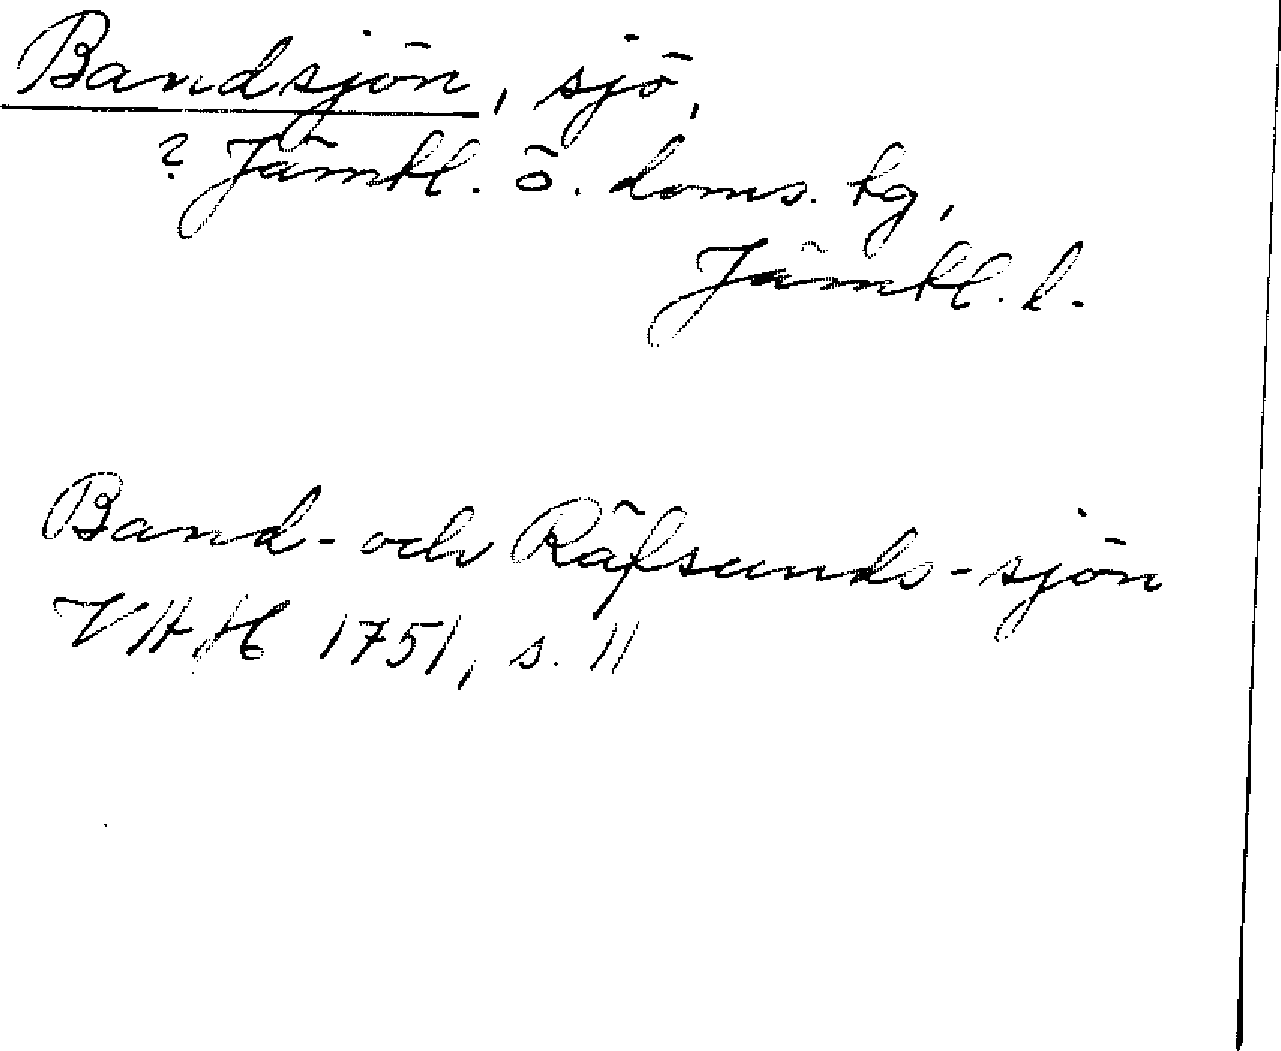 Bandsjön, sjö,
? Jämtl. ö. doms. tg,
Jämtl. l.
Band- och Räfsunds-sjön
VHAH 1751, s. 11